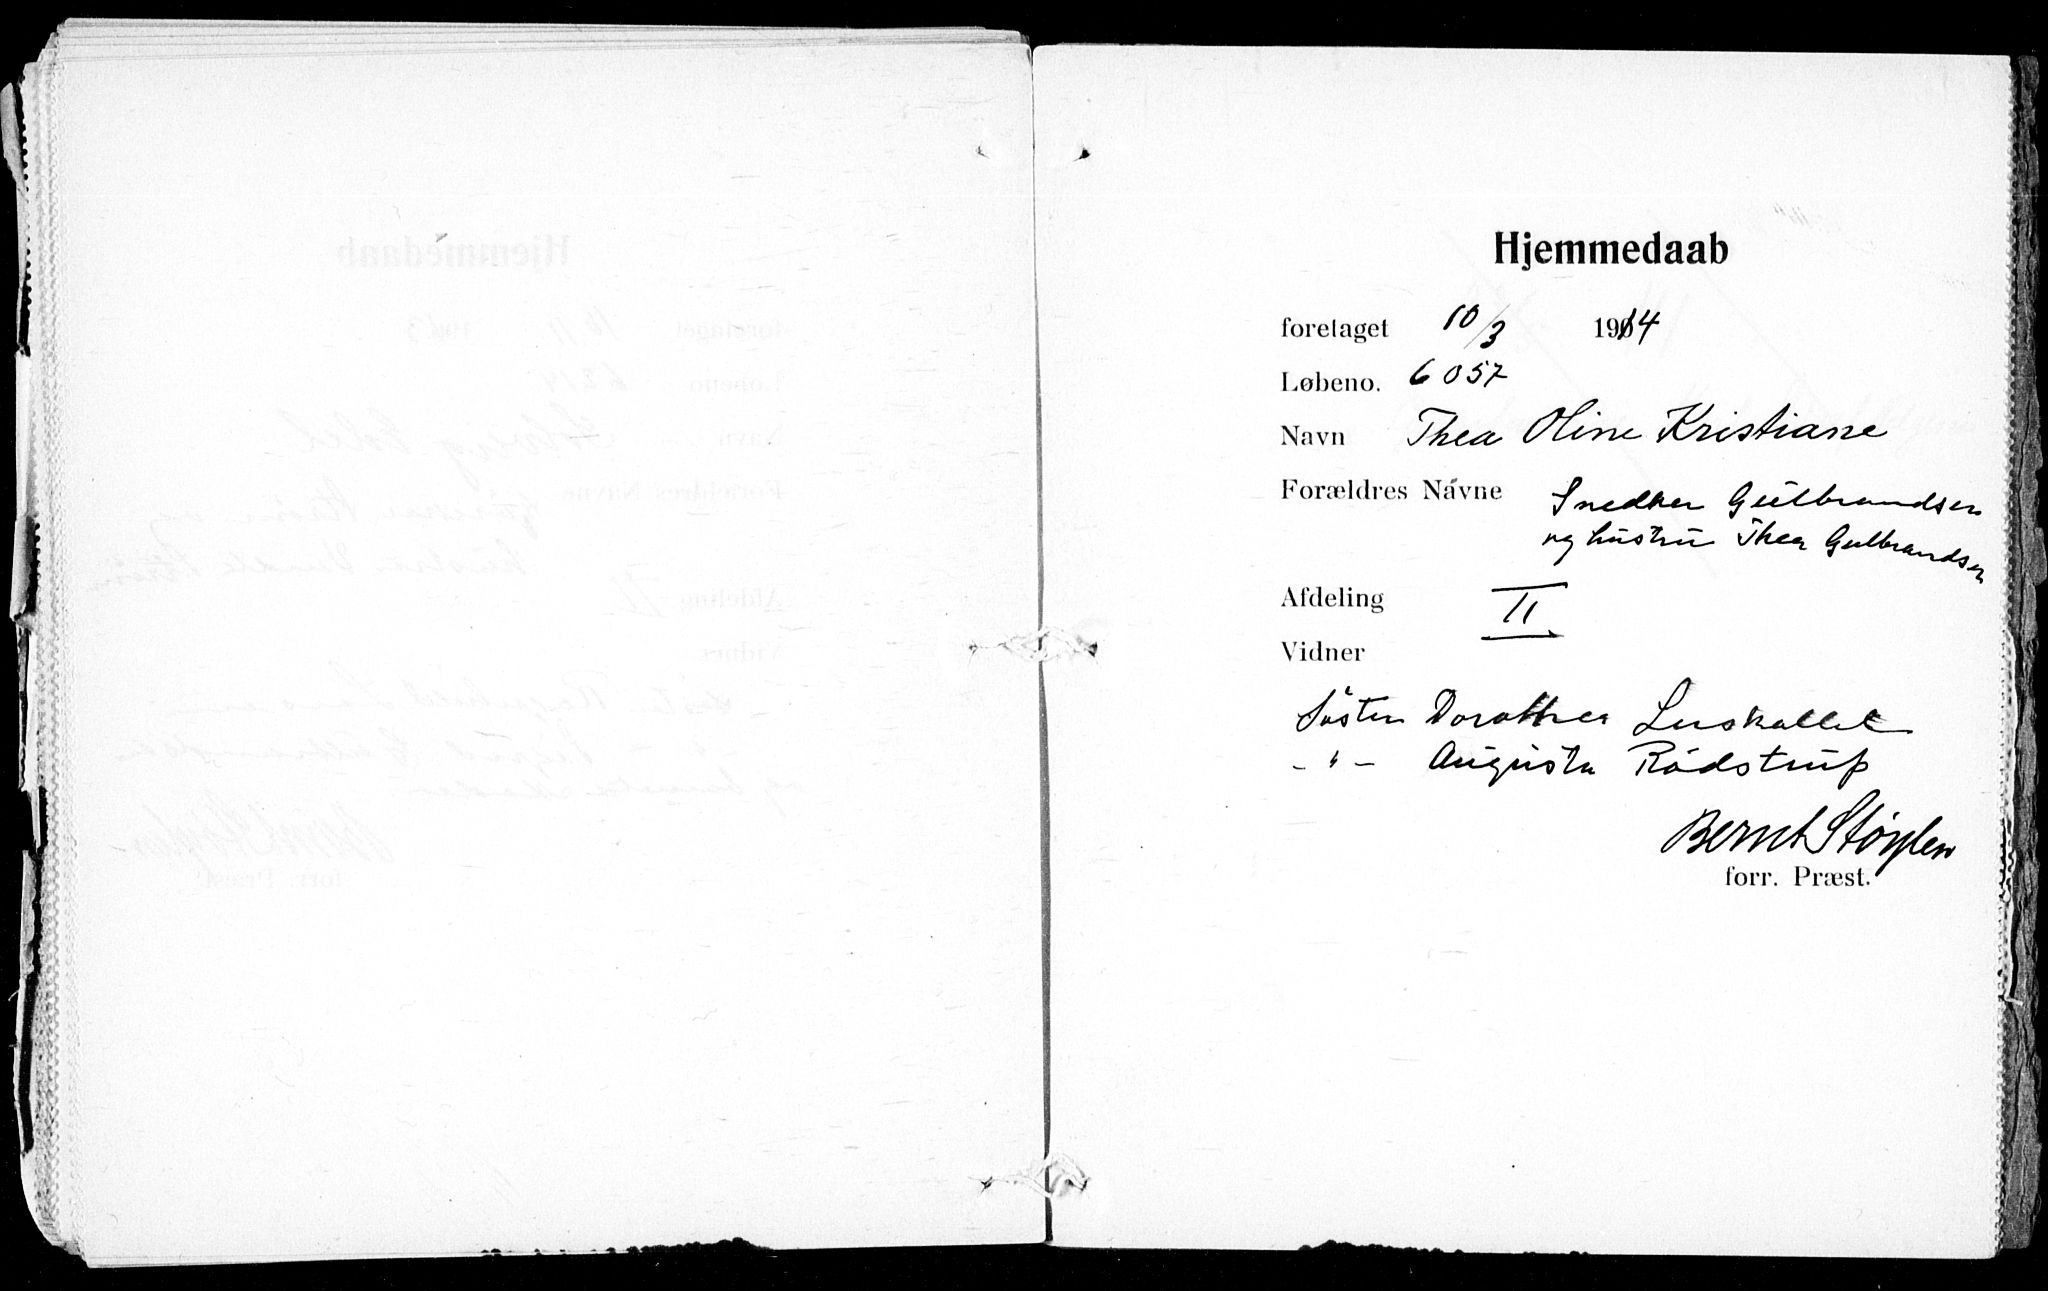 Hjemmedaab
foretaget 10/3 1914
Løbeno. 6057
Navn Thea Oline Kristiane
Forældres Navne Snedker Gulbrandsen
og hustru Thea Gulbrandsen
Afdeling II
Vidner
Söster Dorothea
- " - Augusta Rødstrup
Bernt Støylen
forr. Præst.